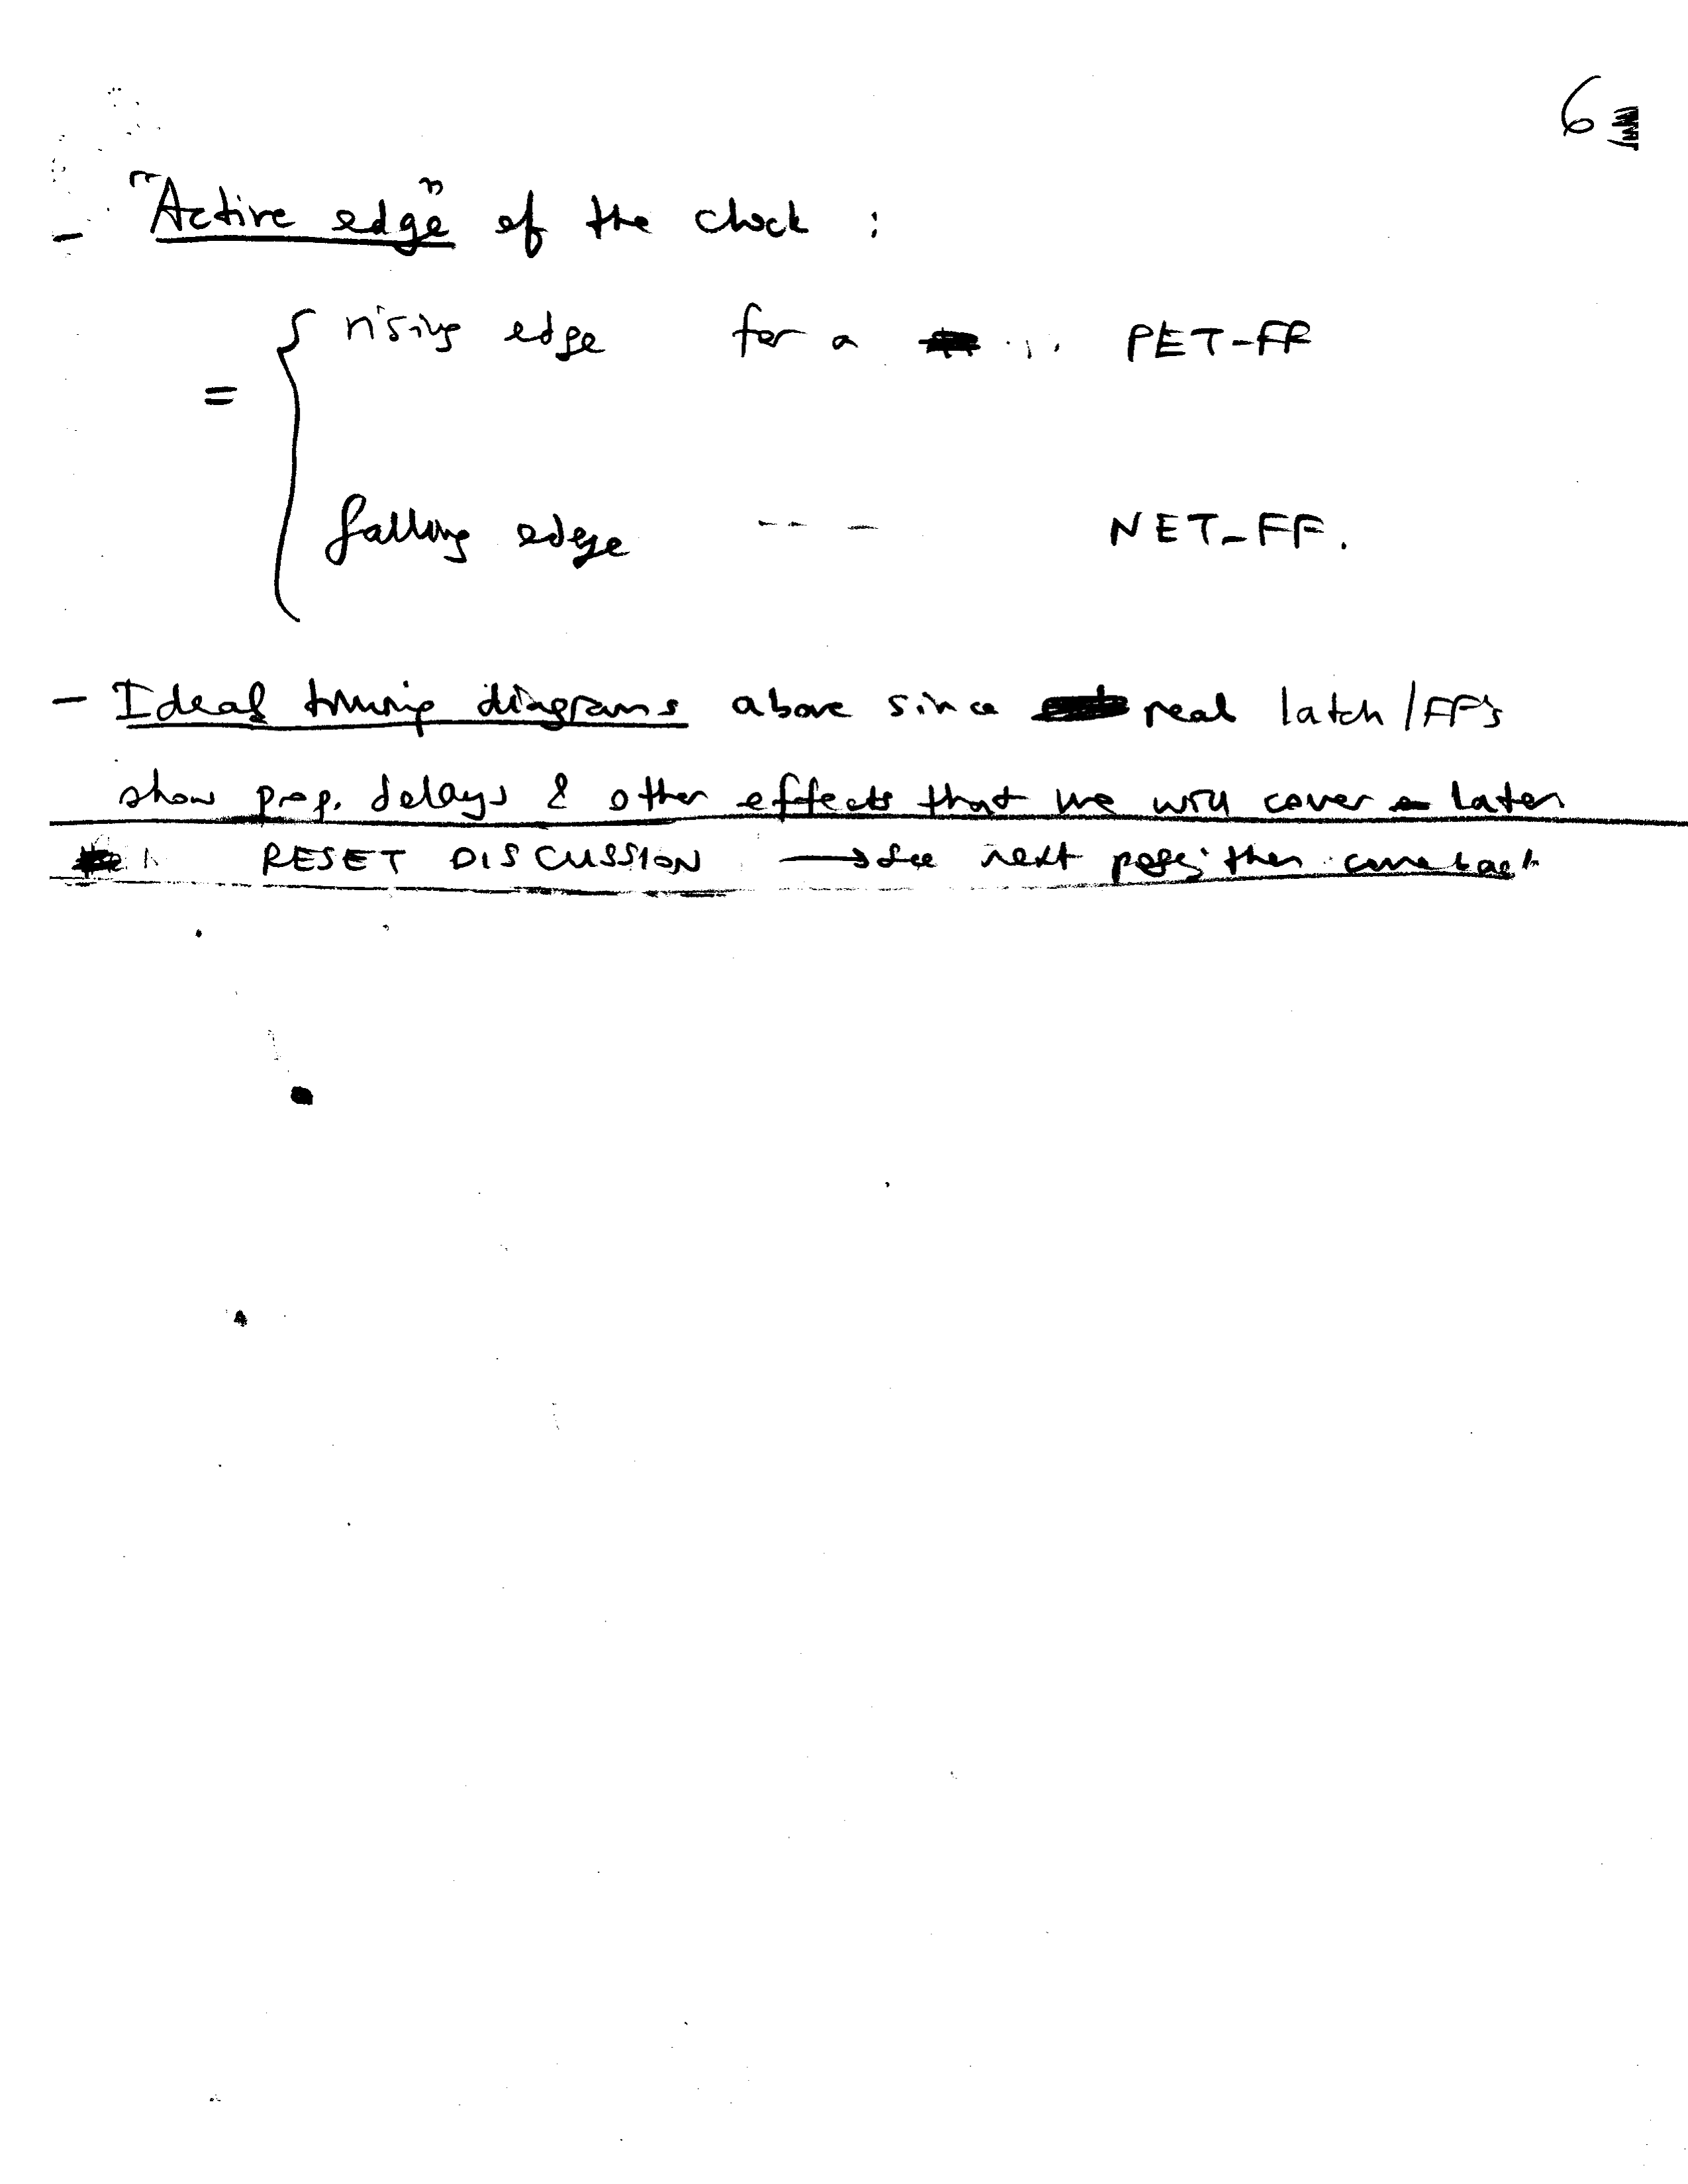 6
- "Active edge" of the clock :
= { rising edge for a ... PET-FF
falling edge - - - NET-FF.
- Ideal timing diagrams above since real latch/FF's
show prop. delays & other effects that we will cover later
RESET DISCUSSION → see next page; then come back